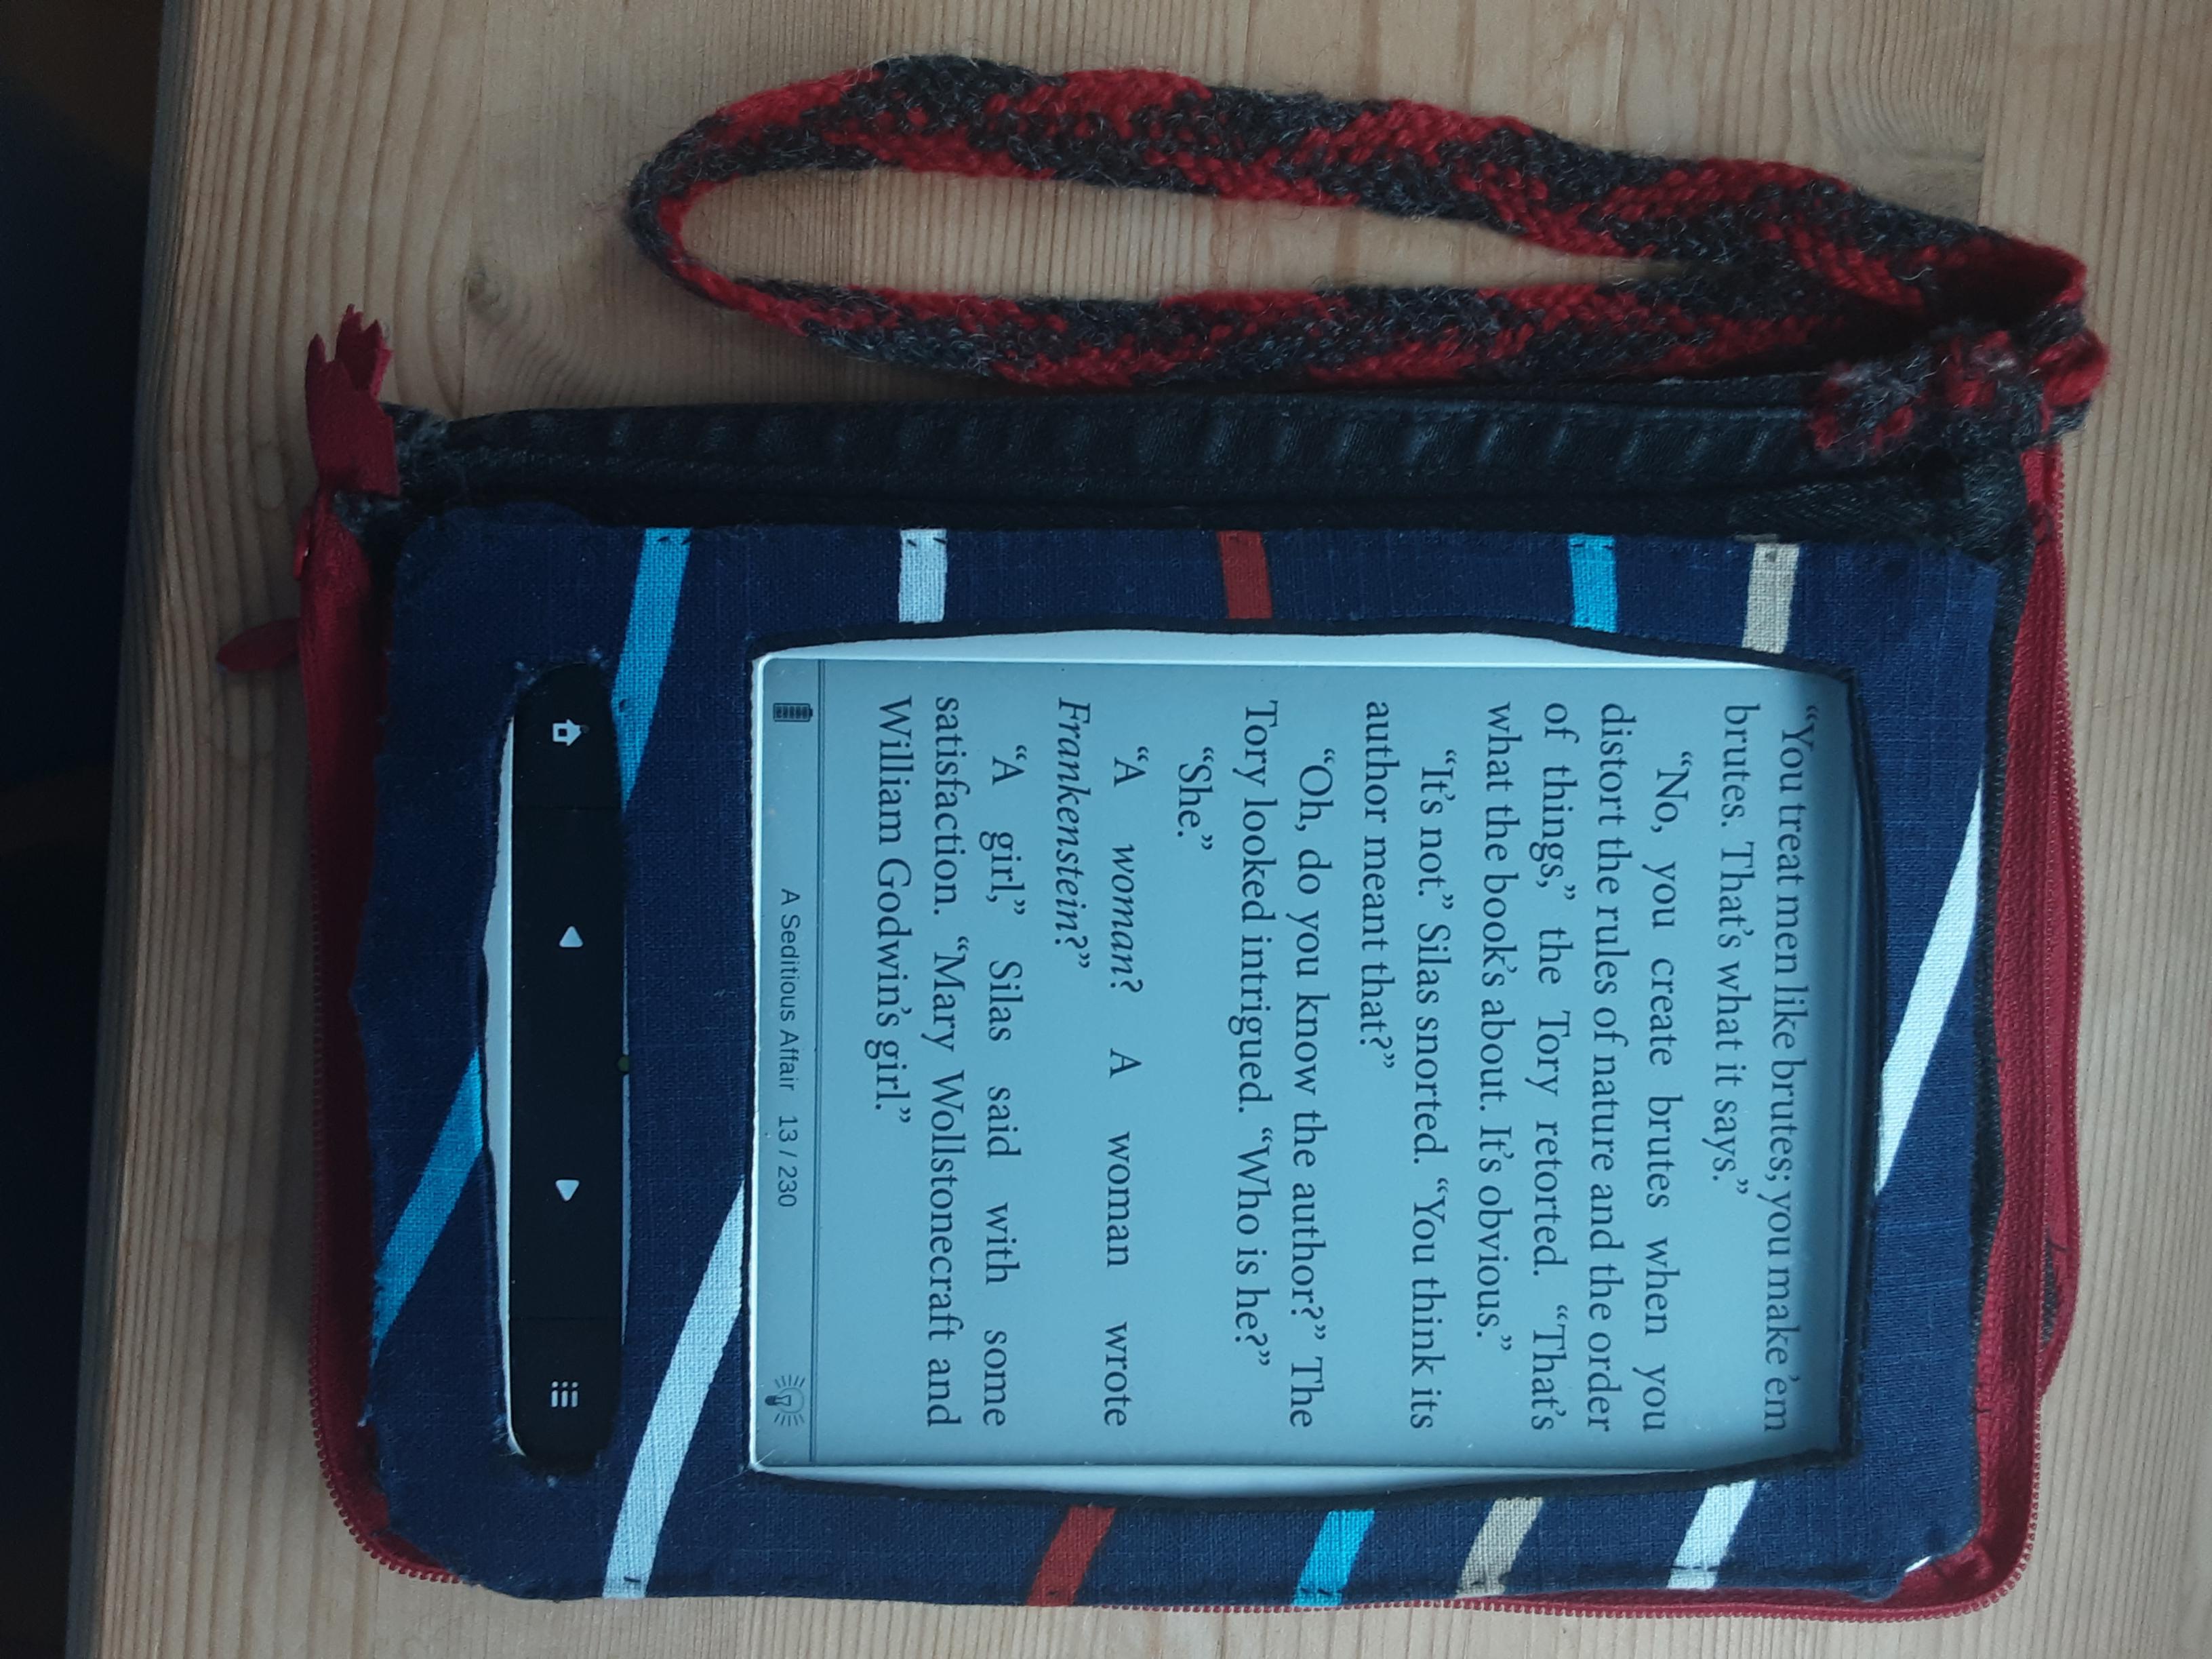 “You treat men like brutes; you make ’em
brutes. That’s what it says.”
“No, you create brutes when you
distort the rules of nature and the order
of things,” the Tory retorted. “That’s
what the book’s about. It’s obvious.”
“It’s not.” Silas snorted. “You think its
author meant that?”
“Oh, do you know the author?” The
Tory looked intrigued. “Who is he?”
“She.”
“A woman? A woman wrote
Frankenstein?”
“A girl,” Silas said with some
satisfaction. “Mary Wollstonecraft and
William Godwin’s girl.”
A Seditious Affair 13 / 230